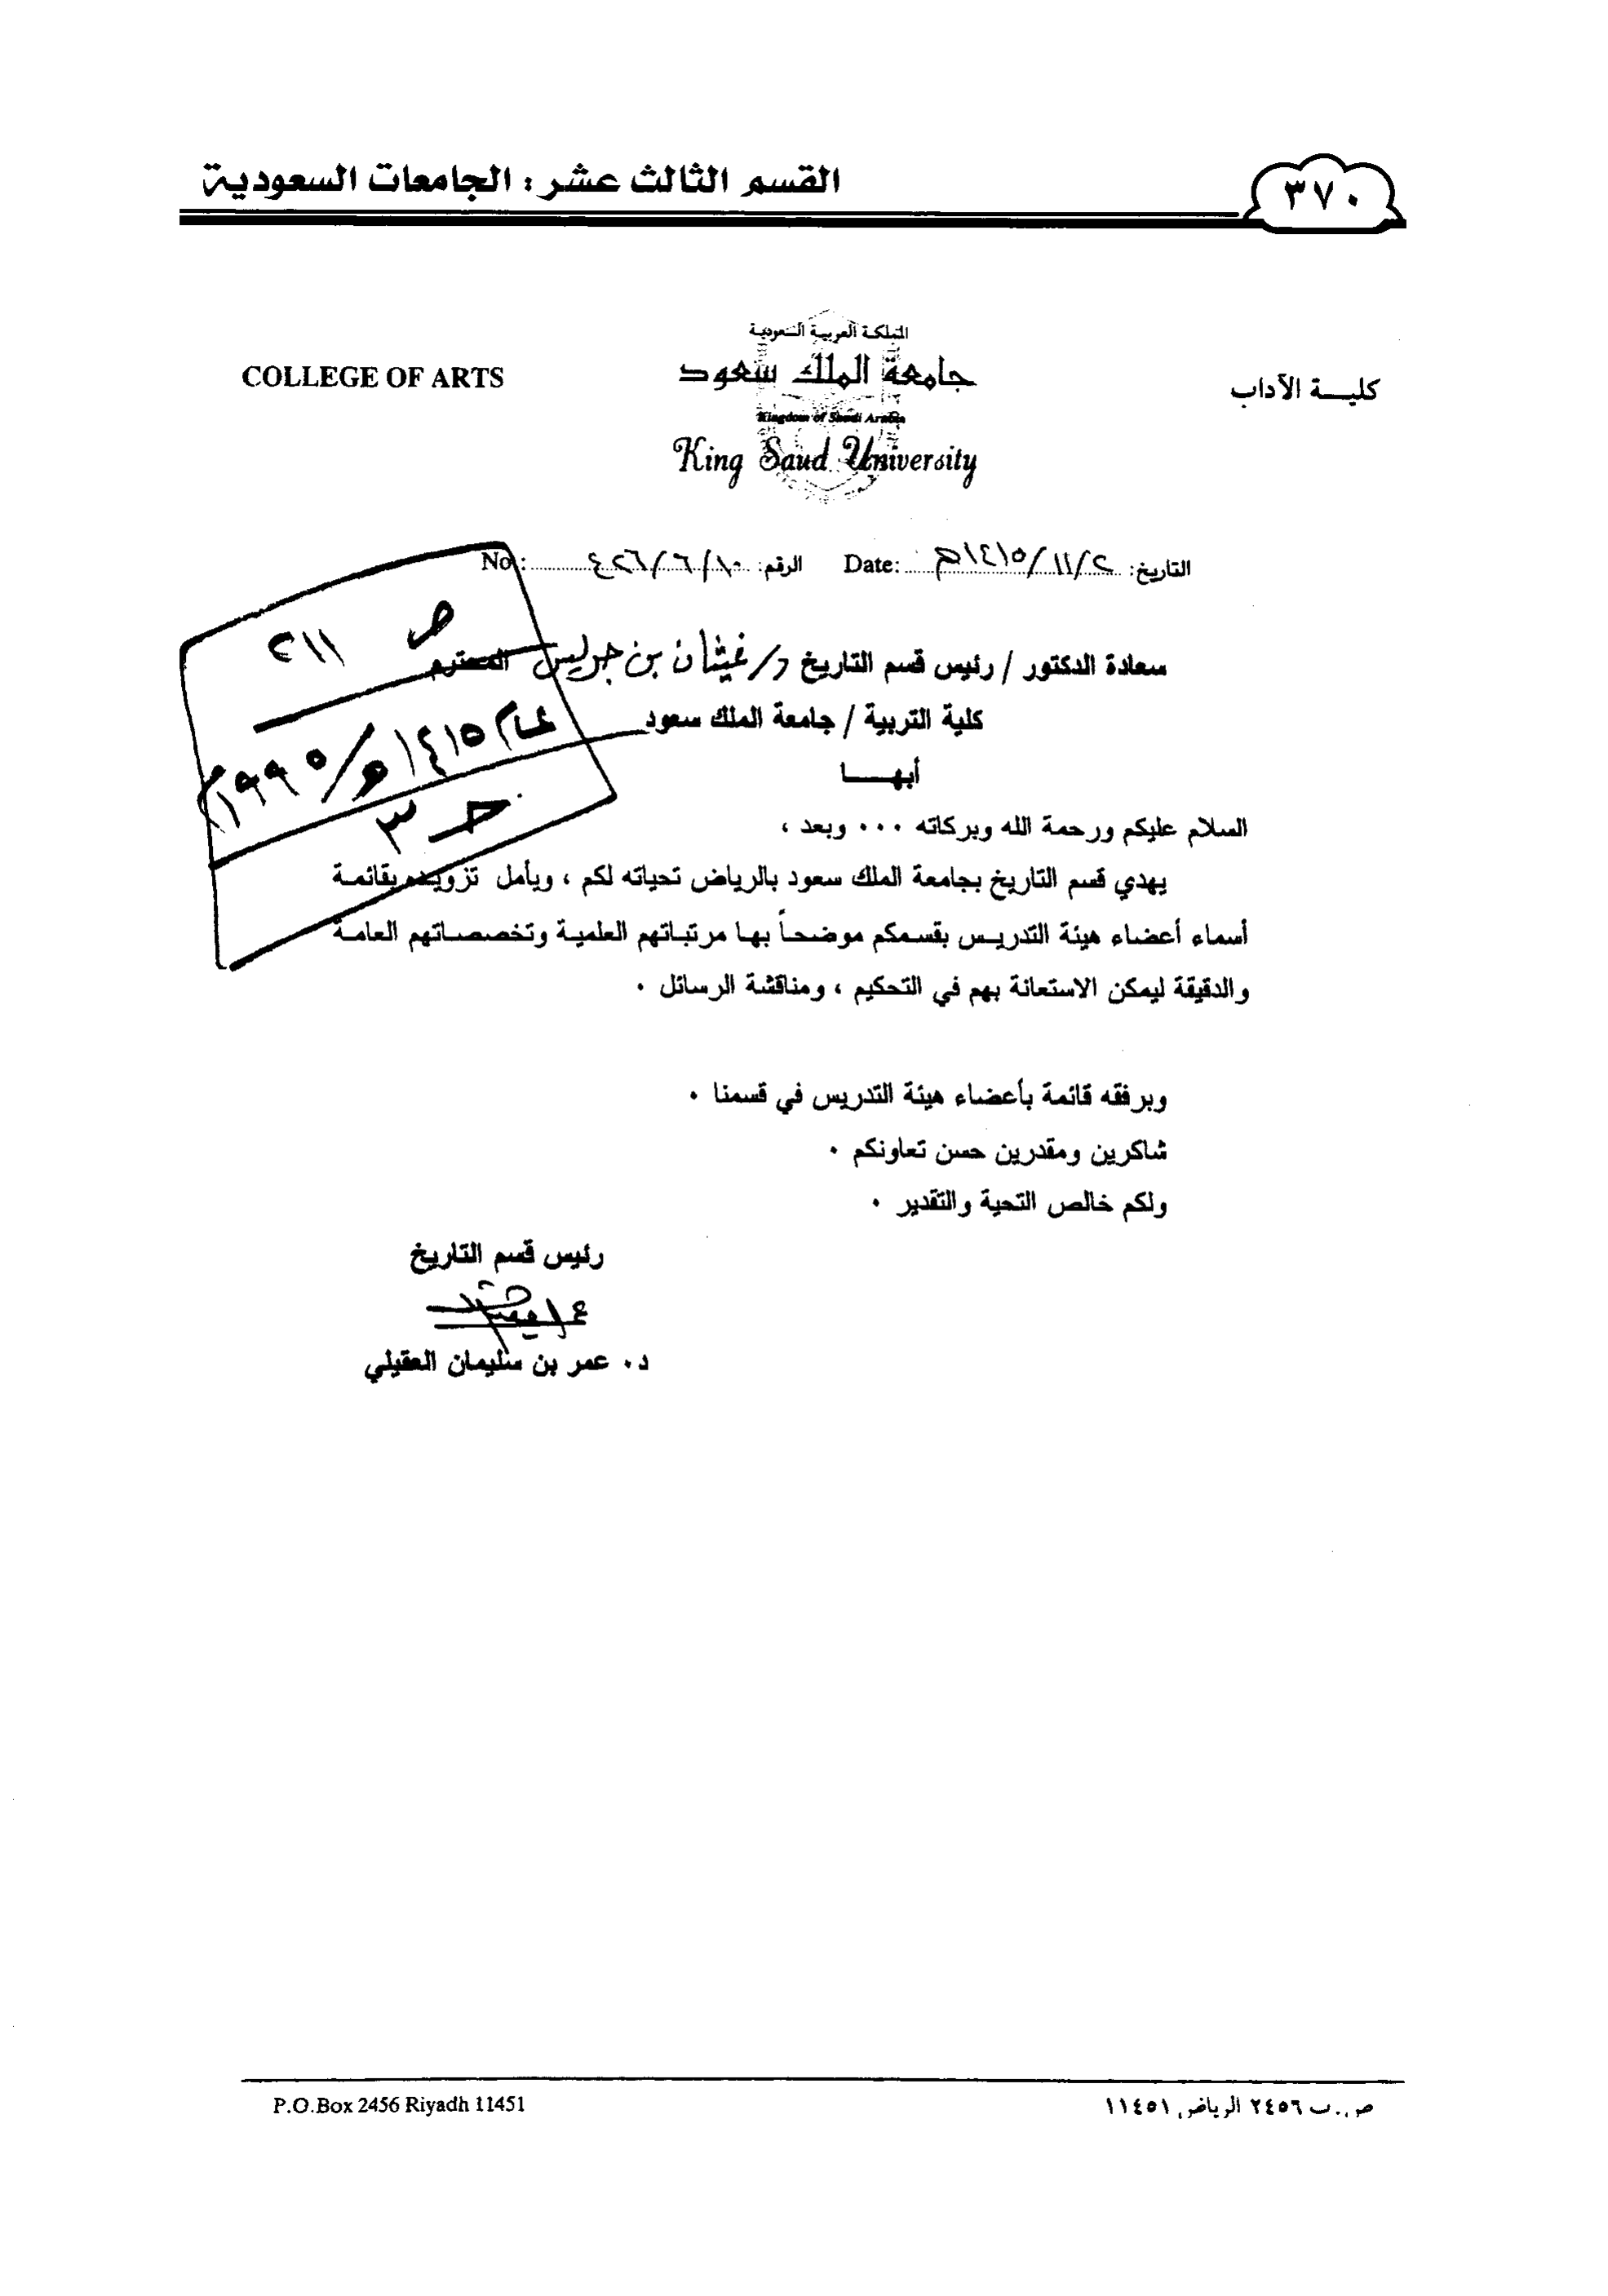 القسم الثالث عشر : الجامعات السعودية
٣٧٠
COLLEGE OF ARTS
المملكة العربية السعودية
جامعة الملك سعود
Kingdom of Saudi Arabia
King Saud University
كليـــة الآداب
التاريخ: ١٤١٥/١١/٢هـ Date: الرقم: ٤٢٦/٦/١٠ No.:
ص ٢١١
عام ١٤١٥هـ/١٩٩٥م
جـ ٣
سعادة الدكتور / رئيس قسم التاريخ د/ غيثان بن جريس المحترم
كلية التربية / جامعة الملك سعود
أبهـــا
السلام عليكم ورحمة الله وبركاته ٠٠٠ وبعد ،
يهدي قسم التاريخ بجامعة الملك سعود بالرياض تحياته لكم ، ويأمل تزويده بقائمة
أسماء أعضاء هيئة التدريس بقسمكم موضحاً بها مرتباتهم العلمية وتخصصاتهم العامة
والدقيقة ليمكن الاستعانة بهم في التحكيم ، ومناقشة الرسائل ٠
وبرفقه قائمة بأعضاء هيئة التدريس في قسمنا ٠
شاكرين ومقدرين حسن تعاونكم ٠
ولكم خالص التحية والتقدير ٠
رئيس قسم التاريخ
د٠ عمر بن سليمان العقيلي
P.O.Box 2456 Riyadh 11451
ص.ب ٢٤٥٦ الرياض ١١٤٥١